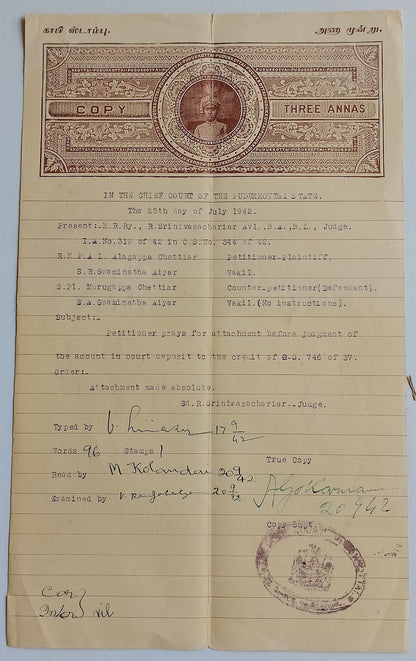 காபி ஸ்டாம்பு. அணா மூன்று.
COPY THREE ANNAS
IN THE CHIEF COURT OF THE PUDUKKOTTAI STATE.
The 25th day of July 1942.
Present:-M.R.Ry., R.Srinivasachariar Avl.,B.A.,B.L., Judge.
I.A.No.319 of 42 in C.S.No. 344 of 42.
R.M.P.A.L. Alagappa Chettiar Petitioner-Plaintiff.
S.R.Swaminatha Aiyar Vakil.
S.Pl. Murugappa Chettiar Counter-petitioner(Defendant).
S.A.Swaminatha Aiyar Vakil.(No instructions).
Subject:-
Petitioner prays for attachment before judgment of
the amount in court deposit to the credit of O.S. 746 of 37.
Order:-
Attachment made absolute.
Sd.R.Srinivasachariar--Judge.
Typed by 17 9/42
Words 96 Stamps 1
True Copy
Read by M. Kolandai 20 9/42
Examined by 20 9/42
20 9 42
Copy Supt.